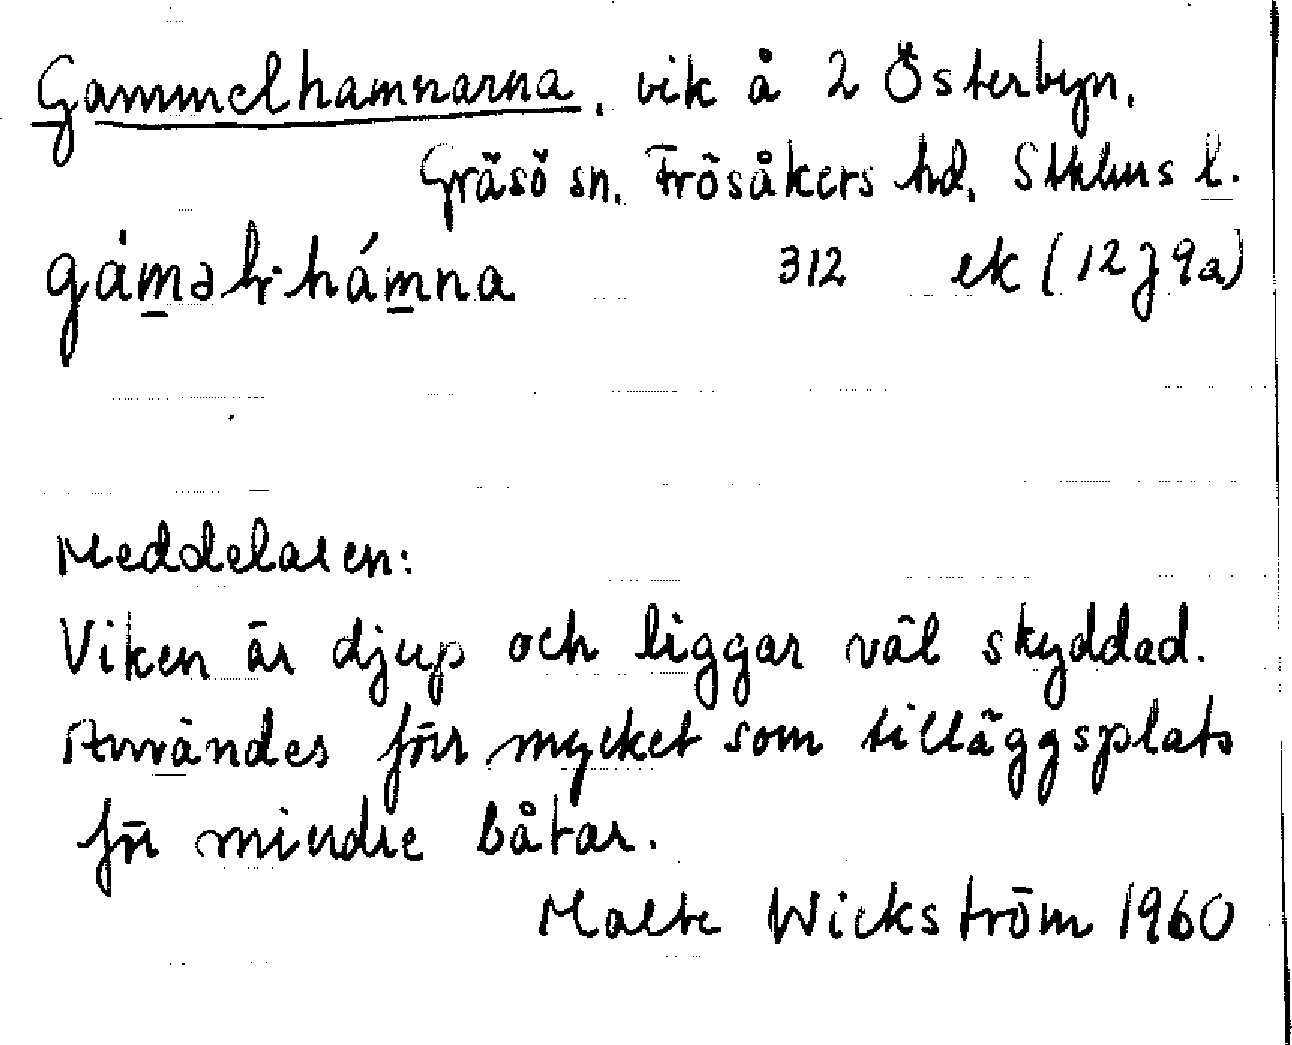 Gammelhamnarna, vik å 2 Österbyn,
Gräsö sn, Frösåkers hd, Sthlms l.
gàməl-hámna 312 ek (12J9a)
Meddelaren:
Viken är djup och liggar väl skyddad.
Användes förr mycket som tilläggsplats
för mindre båtar.
Malte Wickström 1960